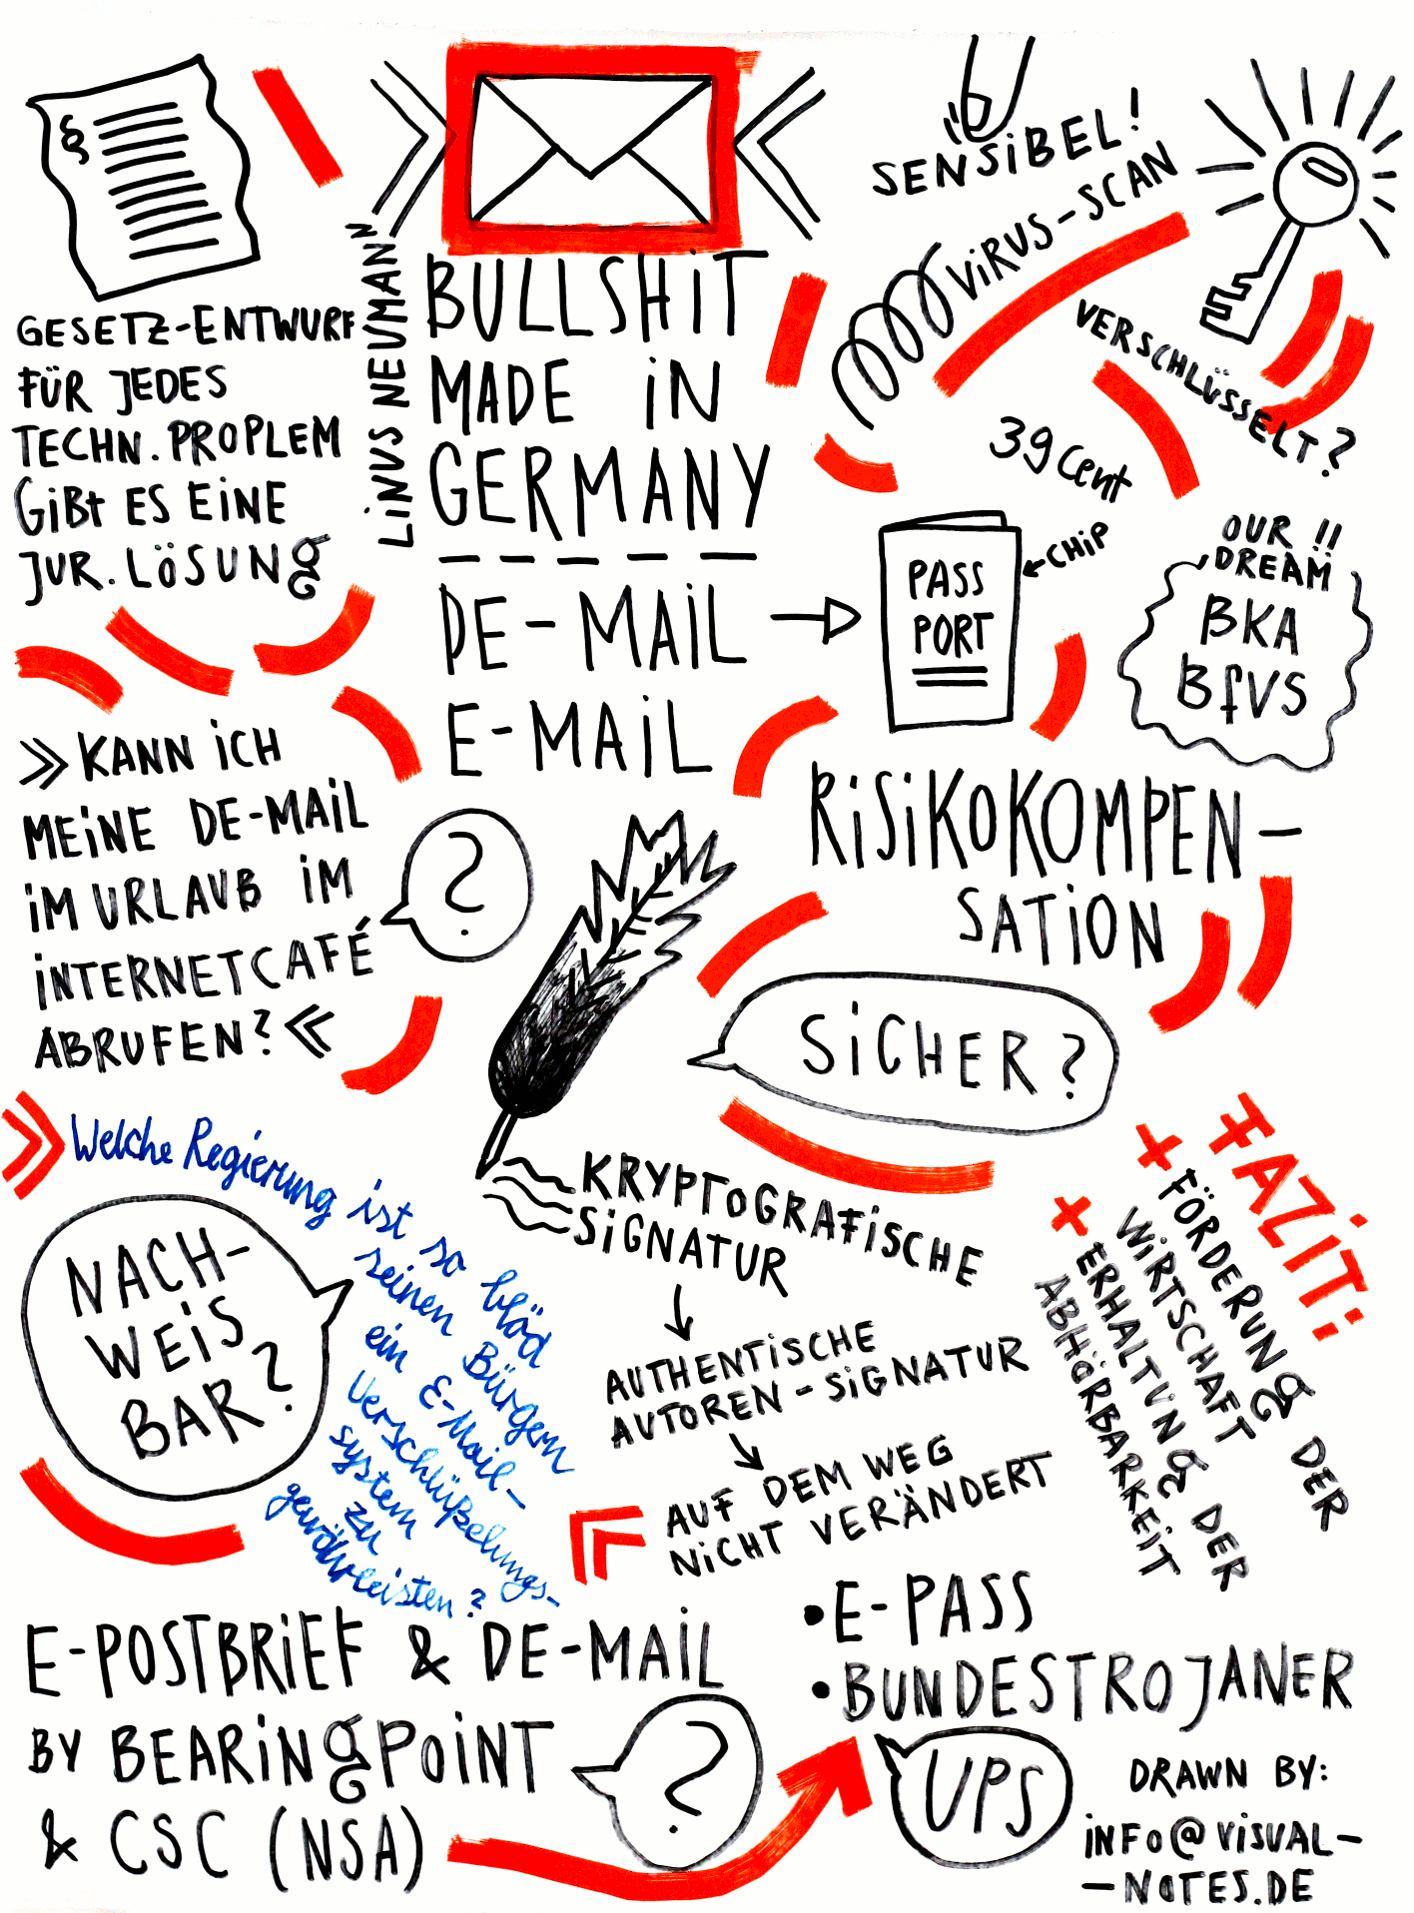 §
GESETZ-ENTWURF
FÜR JEDES
TECHN. PROPLEM
GiBt ES EiNE
JUR. LÖSUNG
LiNUS NEUMANN
BULLSHiT
MADE iN
GERMANY
DE-MAiL
E-MAiL
SENSiBEL!
ViRUS-SCAN
VERSCHLÜSSELT?
39 Cent
PASS
PORT
CHiP
OUR !!
DREAM
BKA
BfVS
RiSiKOKOMPEN-
SATiON
»KANN iCH
MEiNE DE-MAiL
iM URLAUB iM
iNTERNETCAFÉ
ABRUFEN?«
?
SiCHER?
» Welche Regierung ist so blöd
seinen Bürgern
ein E-Mail-
Verschlüßelungs-
system
zu
gewährleisten?
«
NACH-
WEiS
BAR?
KRYPTOGRAFiSCHE
SiGNATUR
AUTHENTiSCHE
AUTOREN-SiGNATUR
AUF DEM WEG
NiCHT VERÄNDERT
FAZiT:
+ FÖRDERUNG DER
WiRTSCHAFT
+ ERHALTUNG DER
ABHÖRBARKEiT
E-POSTBRiEF & DE-MAiL
BY BEARiNGPOiNT
& CSC (NSA)
?
• E-PASS
• BUNDESTROJANER
UPS
DRAWN BY:
iNFO@ViSUAL-
-NOTES.DE